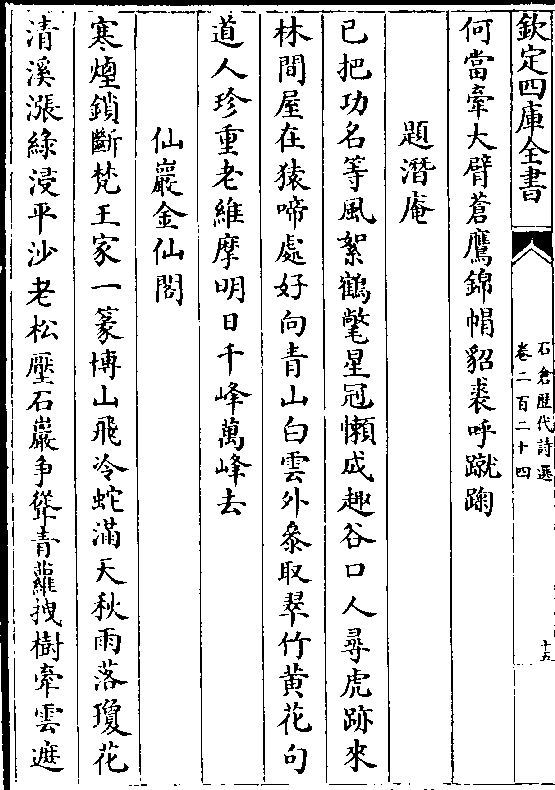 欽定四庫全書
石倉歴代詩選
卷二百二十四
十五
何當牽大臂蒼鷹錦帽貂裘呼蹴踘
題潛庵
已把功名等風絮鶴氅星冠懶成趣谷口人尋虎跡來
林間屋在猿啼處好向青山白雲外叅取翠竹黄花句
道人珍重老維摩明日千峰萬峰去
仙巖金仙閣
寒煙鎖斷梵王家一篆博山飛冷蛇滿天秋雨落瓊花
清溪漲綠浸平沙老松壓石巖爭聳青蘿拽樹牽雲遮